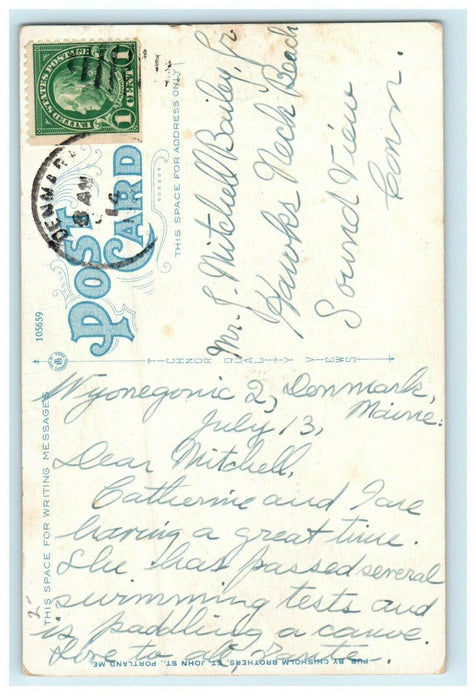 UNITED STATES POSTAGE
1 CENT 1
DENMARK
8 AM
POST
CARD
THIS SPACE FOR ADDRESS ONLY
105659
Mr. J. Mitchell Bailey, Jr
Hawks Neck Beach
Sound View
Conn.
TICHNOR QUALITY VIEWS
THIS SPACE FOR WRITING MESSAGES
Wyonegonic 2, Denmark,
Maine.
July 13,
Dear Mitchell,
Catherine and I are
having a great time.
She has passed several
swimming tests and
is paddling a canoe.
Love to all, Tante.
PUB. BY CHISHOLM BROTHERS, ST. JOHN ST., PORTLAND ME